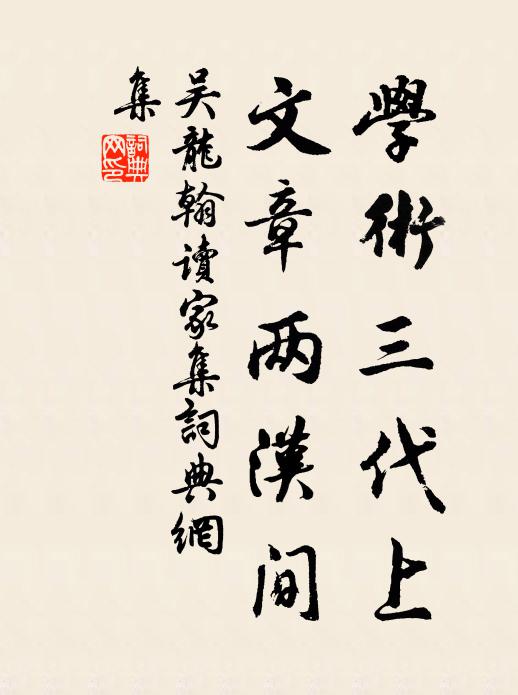 學術三代上
文章两漢間
吴龍翰讀家集詞典網
集
詞典網印